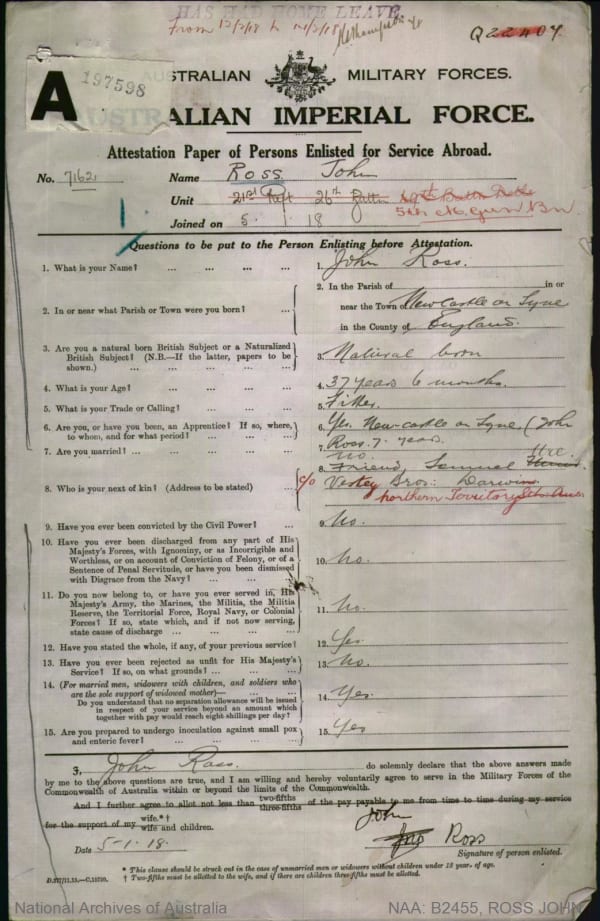 HAS HAD HOME LEAVE
From 12/2/18 to
Q 22404
197598
AUSTRALIAN MILITARY FORCES.
A
AUSTRALIAN IMPERIAL FORCE.
Attestation Paper of Persons Enlisted for Service Abroad.
No. 7162 Name Ross John
Unit 21st Reft 26th Battn 5th M. Gun Bn
Joined on 5 . 1 . 18
Questions to be put to the Person Enlisting before Attestation.
1. What is your Name? ... ... ... ... 1. John Ross.
2. In or near what Parish or Town were you born? ... 2. In the Parish of in or
near the Town of Newcastle on Tyne
in the County of England.
3. Are you a natural born British Subject or a Naturalized
British Subject? (N.B.—If the latter, papers to be
shown.) ... ... ... ... ... 3. Natural born
4. What is your Age? ... ... ... ... 4. 37 years 6 months.
5. What is your Trade or Calling? ... ... ... 5. Fitter.
6. Are you, or have you been, an Apprentice? If so, where,
to whom, and for what period? ... ... ... 6. Yes. Newcastle on Tyne (John
Ross. 7. years.
7. Are you married? ... ... ... ... 7. No.
8. Who is your next of kin? (Address to be stated) ... 8. Friend, Samuel
c/o Vestey Bros: Darwin
Northern Territory
9. Have you ever been convicted by the Civil Power? ... 9. No.
10. Have you ever been discharged from any part of His
Majesty's Forces, with Ignominy, or as Incorrigible and
Worthless, or on account of Conviction of Felony, or of a
Sentence of Penal Servitude, or have you been dismissed
with Disgrace from the Navy? ... ... ... 10. No.
11. Do you now belong to, or have you ever served in, His
Majesty's Army, the Marines, the Militia, the Militia
Reserve, the Territorial Force, Royal Navy, or Colonial
Forces? If so, state which, and if not now serving,
state cause of discharge ... ... ... ... 11. No.
12. Have you stated the whole, if any, of your previous service? 12. Yes
13. Have you ever been rejected as unfit for His Majesty's
Service? If so, on what grounds? ... ... ... 13. No.
14. (For married men, widowers with children, and soldiers who
are the sole support of widowed mother)—
Do you understand that no separation allowance will be issued
in respect of your service beyond an amount which
together with pay would reach eight shillings per day? 14. Yes.
15. Are you prepared to undergo inoculation against small pox
and enteric fever? ... ... ... ... 15. Yes
I, John Ross. do solemnly declare that the above answers made
by me to the above questions are true, and I am willing and hereby voluntarily agree to serve in the Military Forces of the
Commonwealth of Australia within or beyond the limits of the Commonwealth.
And I further agree to allot not less than two-fifths three-fifths of the pay payable to me from time to time during my service
for the support of my wife.*† wife and children.
John
Date 5-1-18. Jno Ross
Signature of person enlisted.
* This clause should be struck out in the case of unmarried men or widowers without children under 18 year. of age.
† Two-fifths must be allotted to the wife, and if there are children three-fifths must be allotted.
National Archives of Australia NAA: B2455, ROSS JOHN